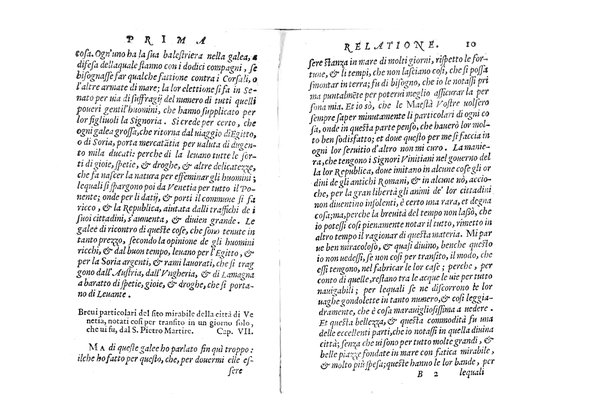 PRIMA
cosa. Ogn'uno ha la sua balestriera nella galea, a
difesa della quale stanno con i dodici compagni, se
bisognasse far qualche fattione contra i Corsali, o
l'altre armate di mare; la lor elettione si fa in Se
nato per via di suffragij del numero di tutti quelli
poueri gentil'huomini, che hanno supplicato per
lor figliuoli la Signoria. Si crede per certo, che
ogni galea grossa, che ritorna dal uiaggio di Egitto,
o di Soria, porta mercatãtia per ualuta di dugen-
to mila ducati: perche di la leuano tutte le sor-
ti di gioie, spetie, & droghe, & altre delicatezze,
che fa nascer la natura per effeminar gli huomini;
lequali si spargono poi da Venetia per tutto il Po-
nente; onde per li datij, & porti il commune si fa
ricco, & la Republica, aiutata dalli traffichi de i
suoi cittadini, s'aumenta, & diuien grande. Le
galee di ricontro di queste cose, che sono uendute in
tanto prezzo, secondo la opinione de gli huomini
ricchi, & dal buon tempo, leuano per l'Egitto, &
per la Soria argenti, & rami lauorati, che si trag
gono dall'Austria, dall'Vngheria, & di Lamagna
a baratto di spetie, gioie, & droghe, che si porta-
no di Leuante.
Breui particolari del sito mirabile della città di Ve
netia, notati così per transito in un giorno solo,
che ui fu, dal S. Pietro Martire. Cap. VII.
MA di queste galee ho parlato fin quì troppo:
ilche ho fatto per questo, che, per douermi elle es-
sere
RELATIONE. 10
sere stanza in mare di molti giorni, rispetto le for-
tune, & li tempi, che non lasciano così, che si possa
smontar in terra; fu di bisogno, che io le notassi pri
ma puntalmẽte per poterui meglio assicurar la per
sona mia. Et io sò, che le Maestà Vostre uolsero
sempre saper minutamente li particolari di ogni co
sa, onde in questa parte penso, che hauerò lor mol-
to ben sodisfatto; et doue per questo me si faccia in
ogni lor seruitio d'altro non mi curo. La manie-
ra, che tengono i Signori Vinitiani nel gouerno del
la lor Republica, doue imitano in alcune cose gli or
dini de gli antichi Romani, & in alcune nò, accio-
che, per la gran libertà gli animi de' lor cittadini
non diuentino insolenti, è certo una rara, et degna
cosa; ma, perche la breuità del tempo non lasciò, che
io potessi così pienamente notar il tutto, rimetto in
altro tempo il ragionar di questa materia. Mi pa
rue ben miracoloso, & quasi diuino, benche questo
io non uedessi, se non così per transito, il modo, che
essi tengono, nel fabricar le lor case; perche, per
conto di quelle, restano tra le acque le uie per tutto
nauigabili; per lequali se ne discorrono le lor
uaghe gondolette in tanto numero, & così leggia-
damente, che è cosa marauigliosissima a uedere.
Et questa bellezza, & questa commodità fu una
delle eccellenti parti, che io notassi in quella diuina
città; senza che ui sono per tutto molte grandi, &
belle piazze fondate in mare con fatica mirabile,
& molto più spesa; queste hanno le lor bande, per
B 2 lequali